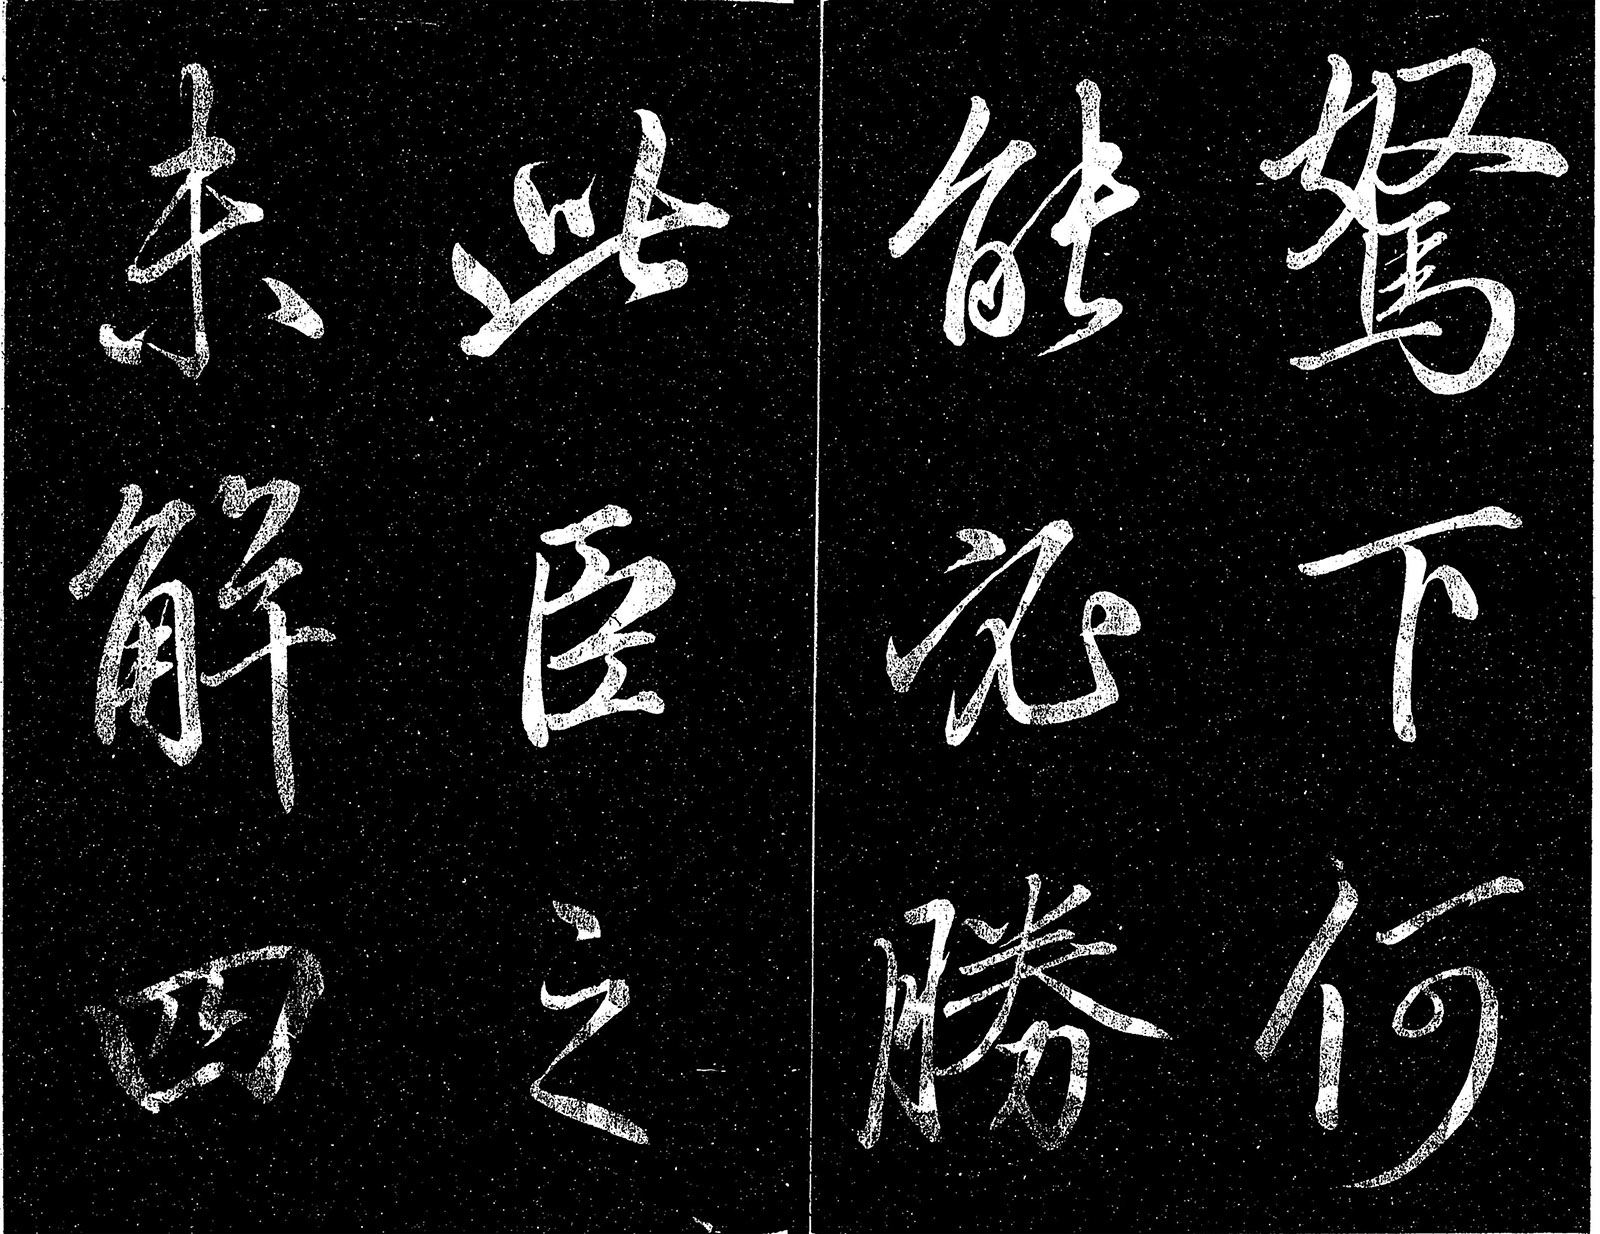 駑下何
能必勝
此臣之
未解四